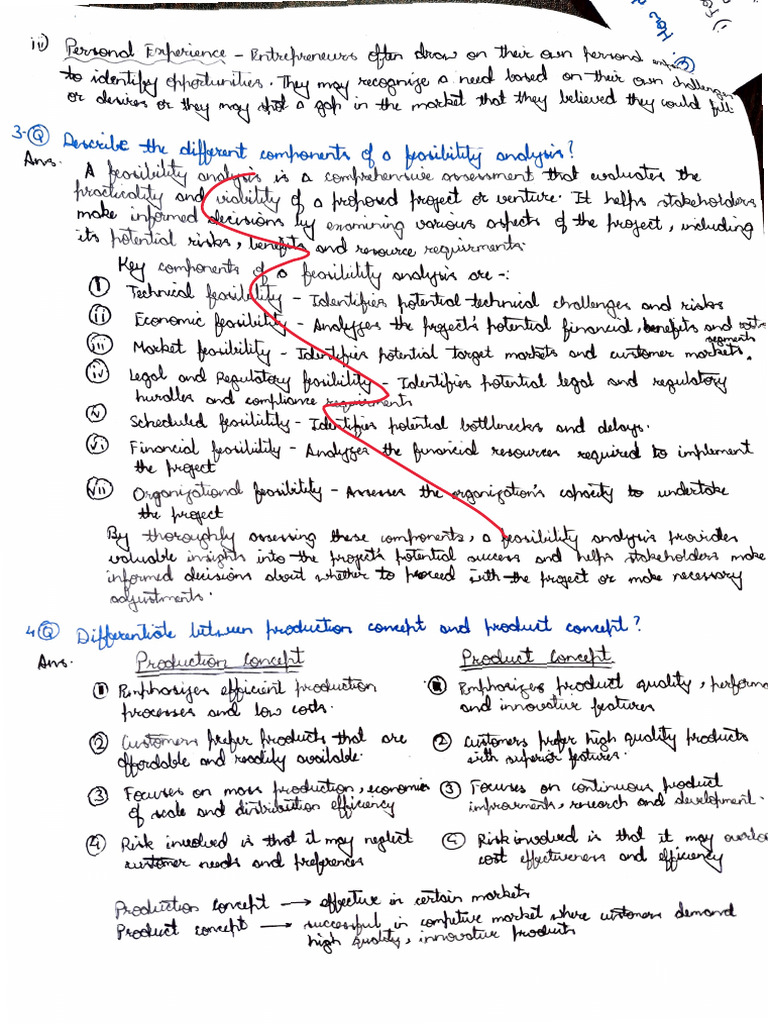 iv) Personal Experience - Entrepreneurs often draw on their own personal
to identify opportunities. They may recognize a need based on their own challenges
or desires or they may spot a gap in the market that they believed they could fill.
3.Q Describe the different components of a feasibility analysis?
Ans. A feasibility analysis is a comprehensive assessment that evaluates the
practicality and viability of a proposed project or venture. It helps stakeholders
make informed decisions by examining various aspects of the project, including
its potential risks, benefits and resource requirments.
Key components of a feasibility analysis are -:
i Technical feasibility - Identifies potential technical challenges and risks
ii Economic feasibility - Analyzes the project's potential financial, benefits and costs
iii Market feasibility - Identifies potential target markets and customer markets.
segments
iv Legal and Regulatory feasibility - Identifies potential legal and regulatory
hurdles and compliance requirments
v Scheduled feasibility - Identifies potential bottlenecks and delays.
vi Financial feasibility - Analyzes the financial resources required to implement
the project
vii Organizational feasibility - Assesses the organization's capacity to undertake
the project
By thoroughly assessing these components, a feasibility analysis provides
valuable insights into the project's potential success and helps stakeholders make
informed decisions about whether to proceed with the project or make necessary
adjustments.
4Q Differentiate between production concept and product concept?
Ans. Production Concept Product Concept
1 Emphasizes efficient production
processes and low costs.
1 Emphasizes product quality, performa
and innovative features
2 Customers prefer products that are
affordable and readily available.
2 Customers prefer high quality products
with superior features.
3 Focuses on mass production, economies
of scale and distribution efficiency
3 Focuses on continuous product
improvments, research and development.
4 Risk involved is that it may neglect
customer needs and preferences
4 Risk involved is that it may overloo
cost effectiveness and efficiency
Production concept → effective in certain markets
Product concept → successful in competive market where customers demand
high quality, innovative products